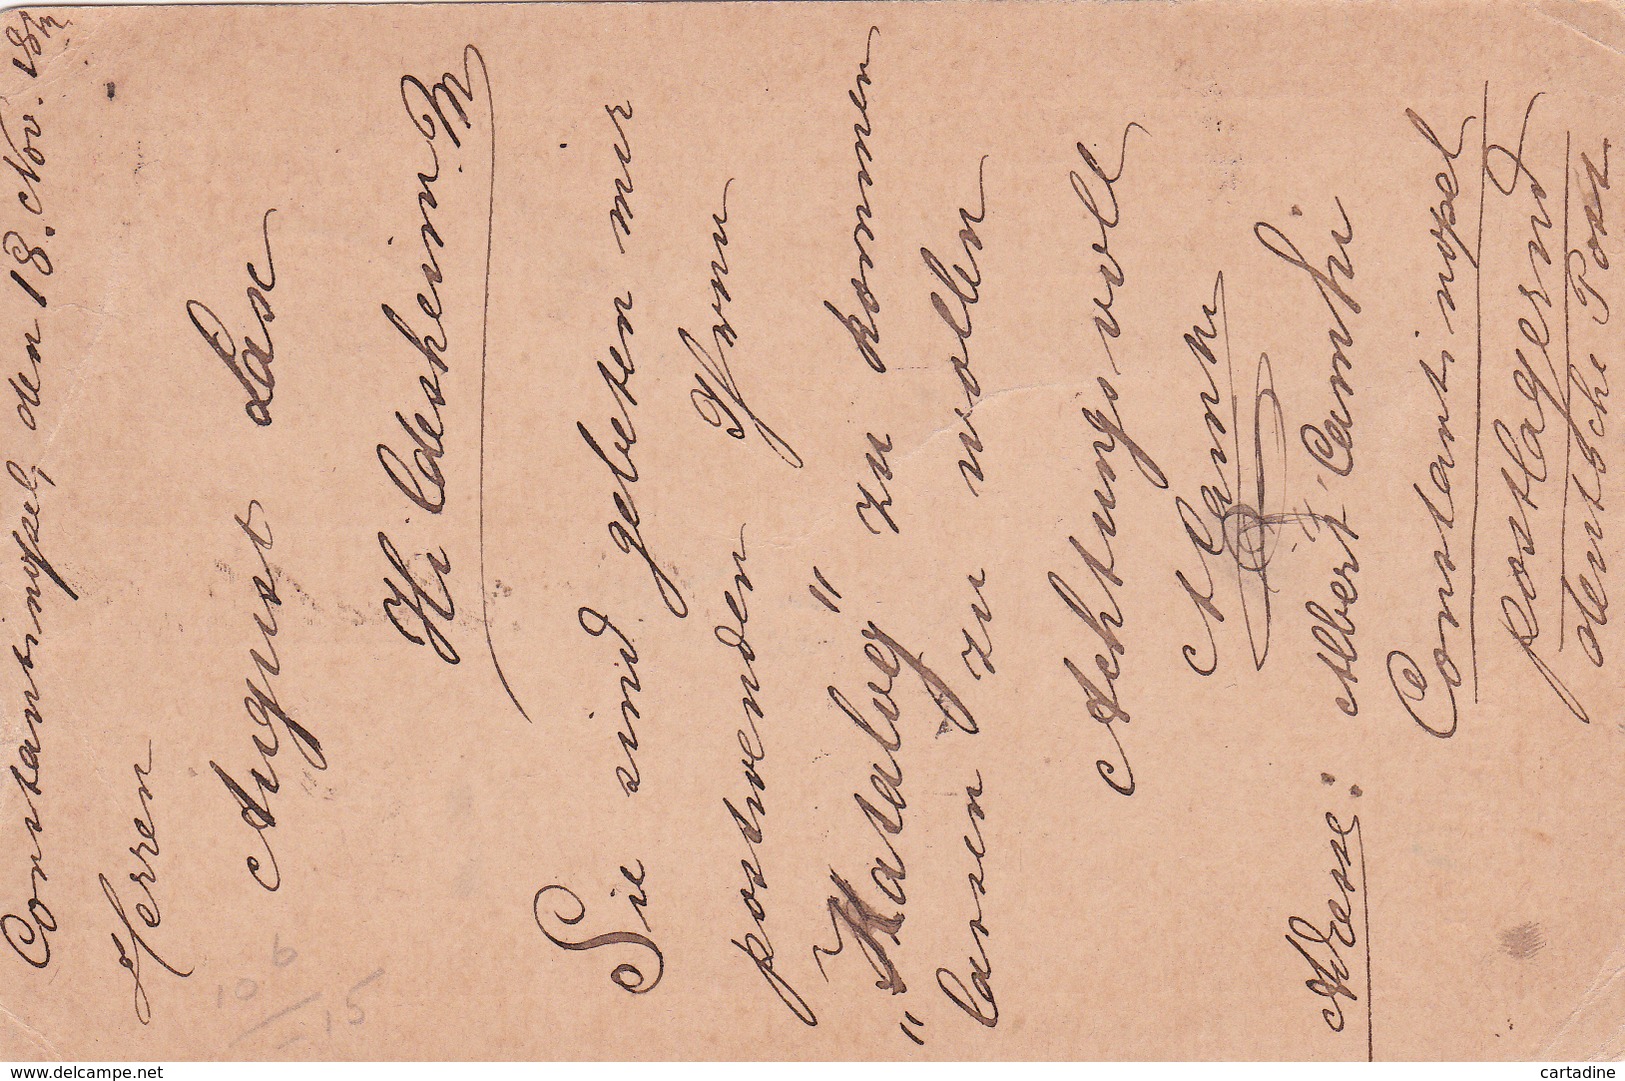 Constantinopel, den 18. Nov. 18
Herren
August Lax
Hildesheim
Sie sind gebeten mir
postwenden Ihren
"Katalog" zu kommen
lassen zu wollen
Achtungsvoll
A Camhi
Adresse: Albert Camhi
Constantinopel
postlagernd
deutsche Post
10 6
15
www.delcampe.net
cartadine